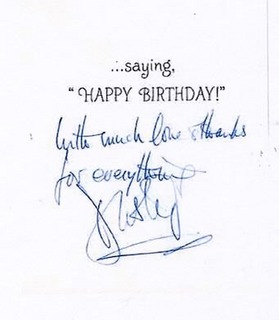 ...saying,
“HAPPY BIRTHDAY!”
With much love & thanks
for everything